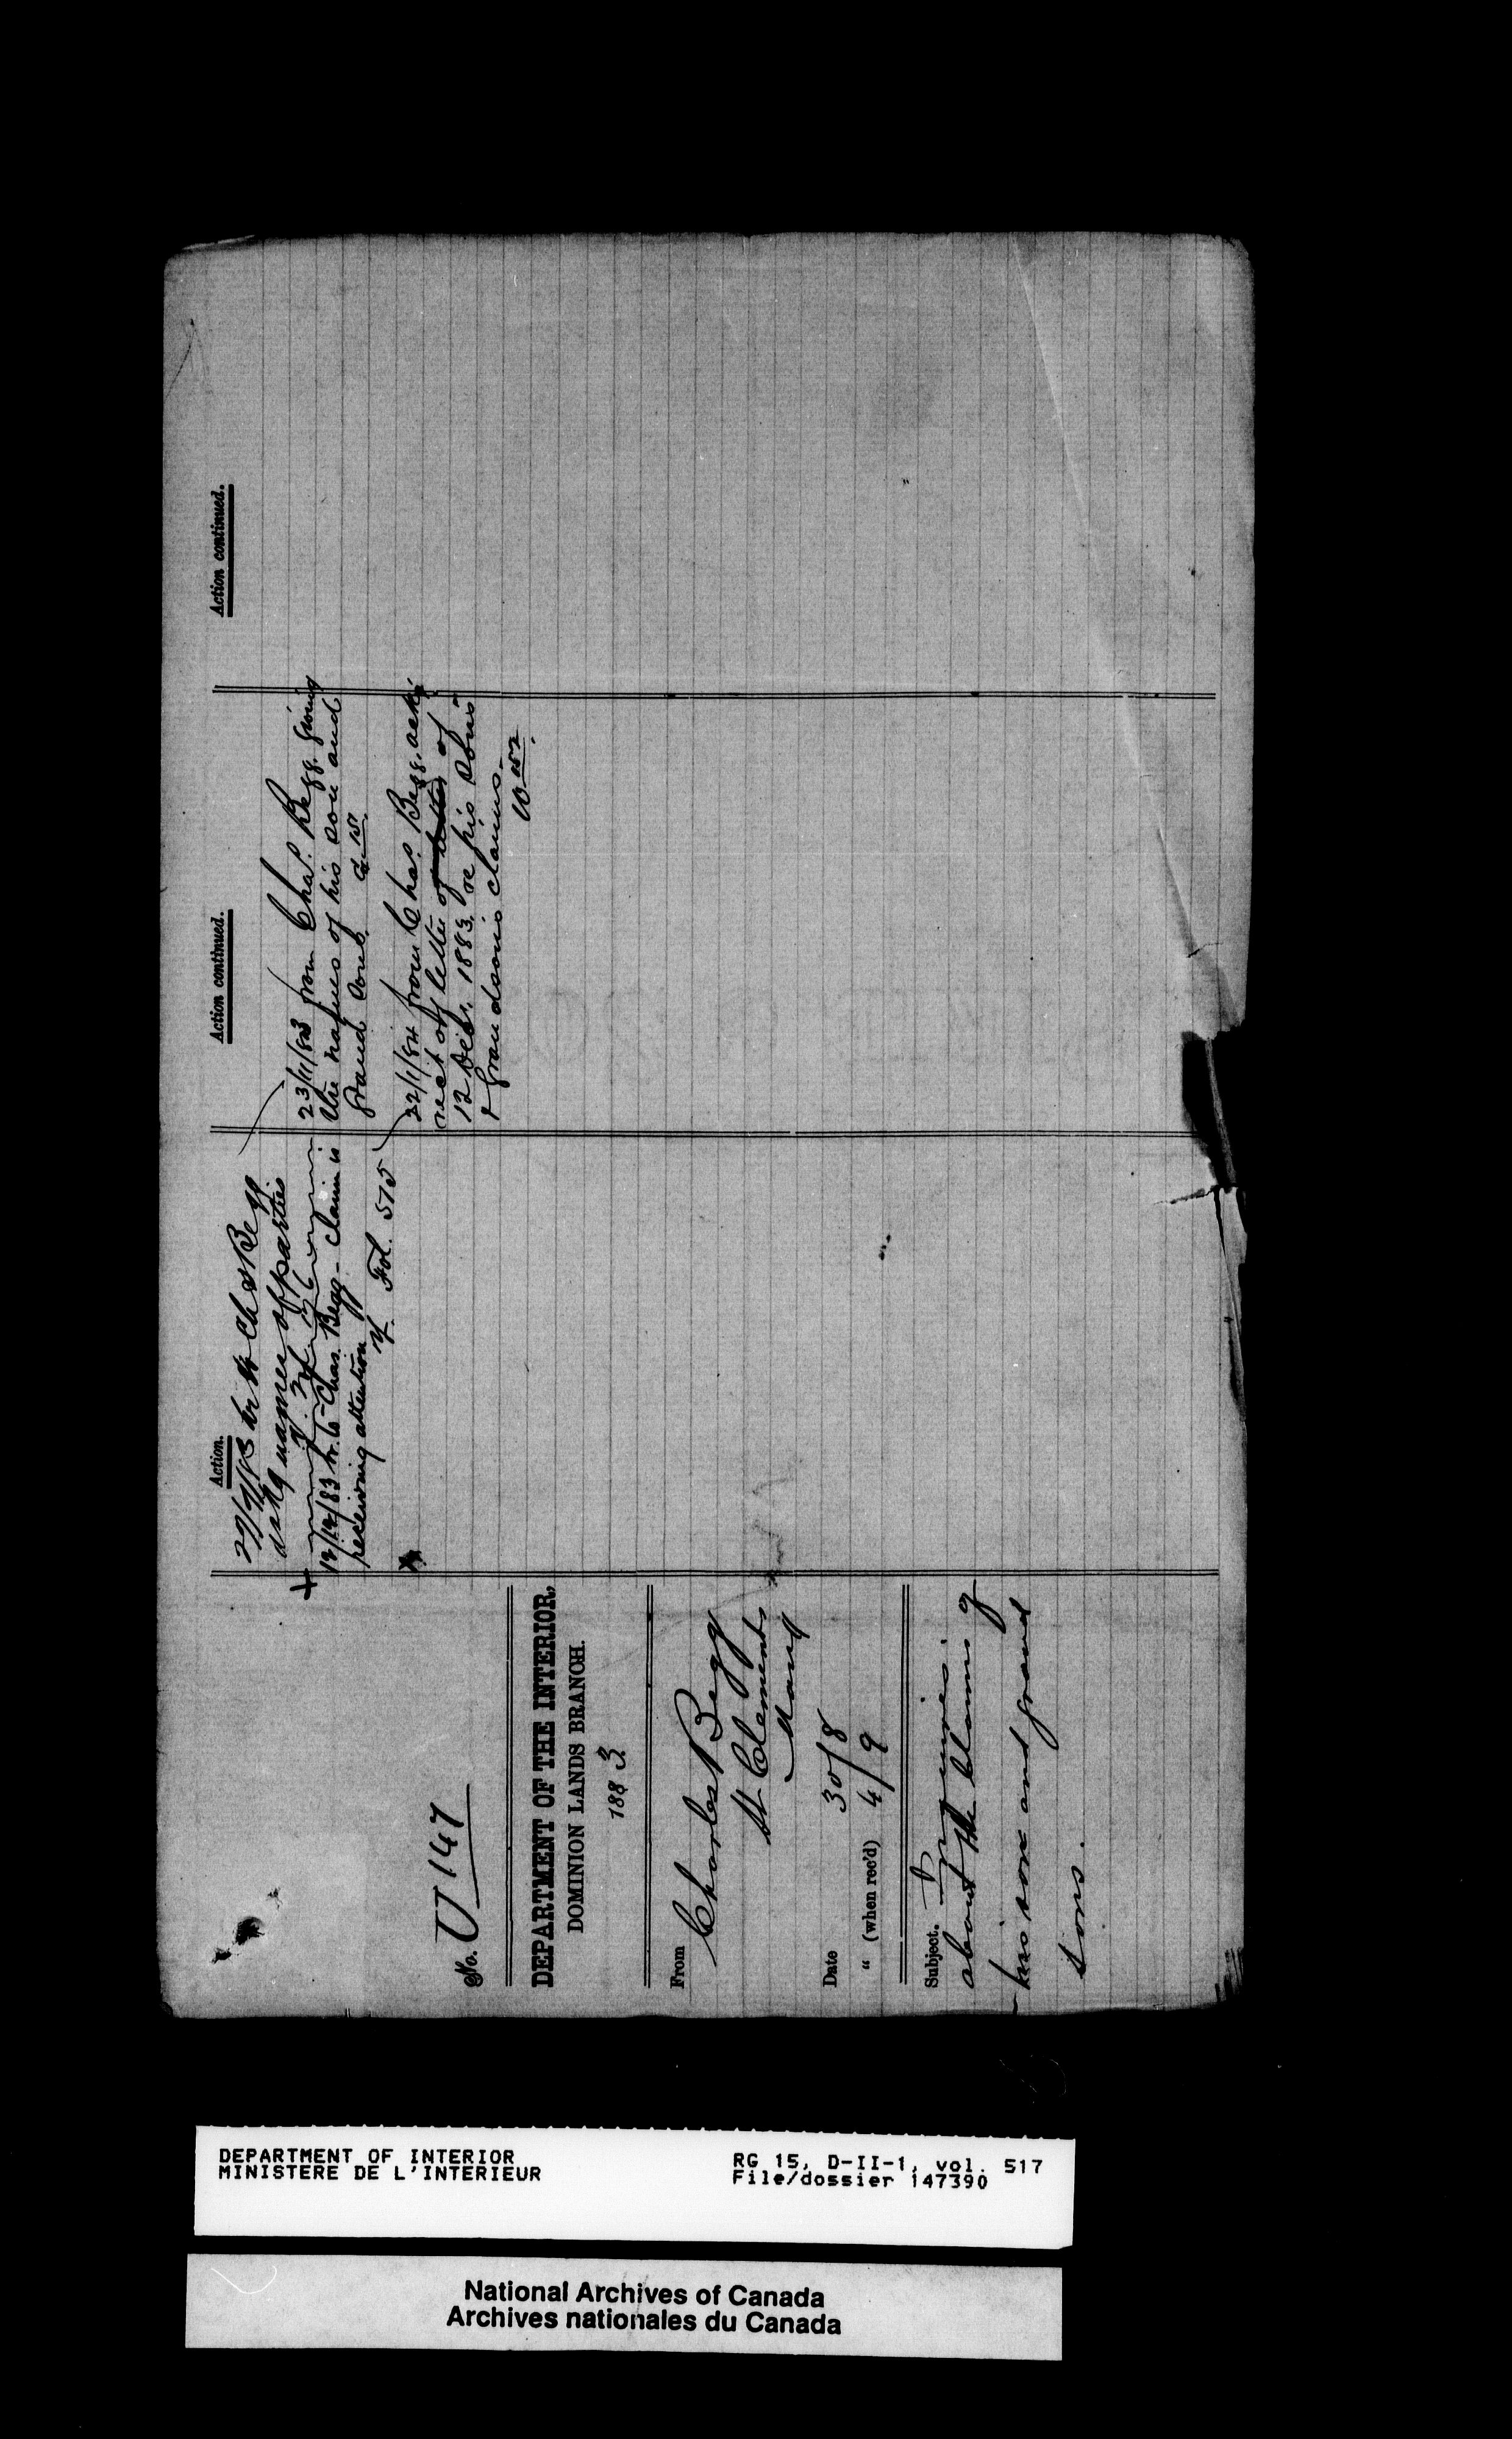 No. U 147
DEPARTMENT OF THE INTERIOR,
DOMINION LANDS BRANCH.
1883.
From Charles Begg
St Clements
Man
Date 30/8
" (when rec'd) 4/9
Subject. Inquires
about the claims of
his son and grand
sons.
Action.
wr to Chas Begg
askg names of parties
12/12/83 wr. to Chas. Begg - claim is
receiving attention
Fol. 575
Action continued.
23/11/83 from Chas. Begg giving
the names of his son and
grand sons.
22/1/84 from Chas. Begg, ackg
rect of letter of letter of
12 Decr. 1883, re his sons
& Grandsons claims.
Action continued.
DEPARTMENT OF INTERIOR
MINISTERE DE L'INTERIEUR
RG 15, D-II-1, vol. 517
File/dossier 147390
National Archives of Canada
Archives nationales du Canada